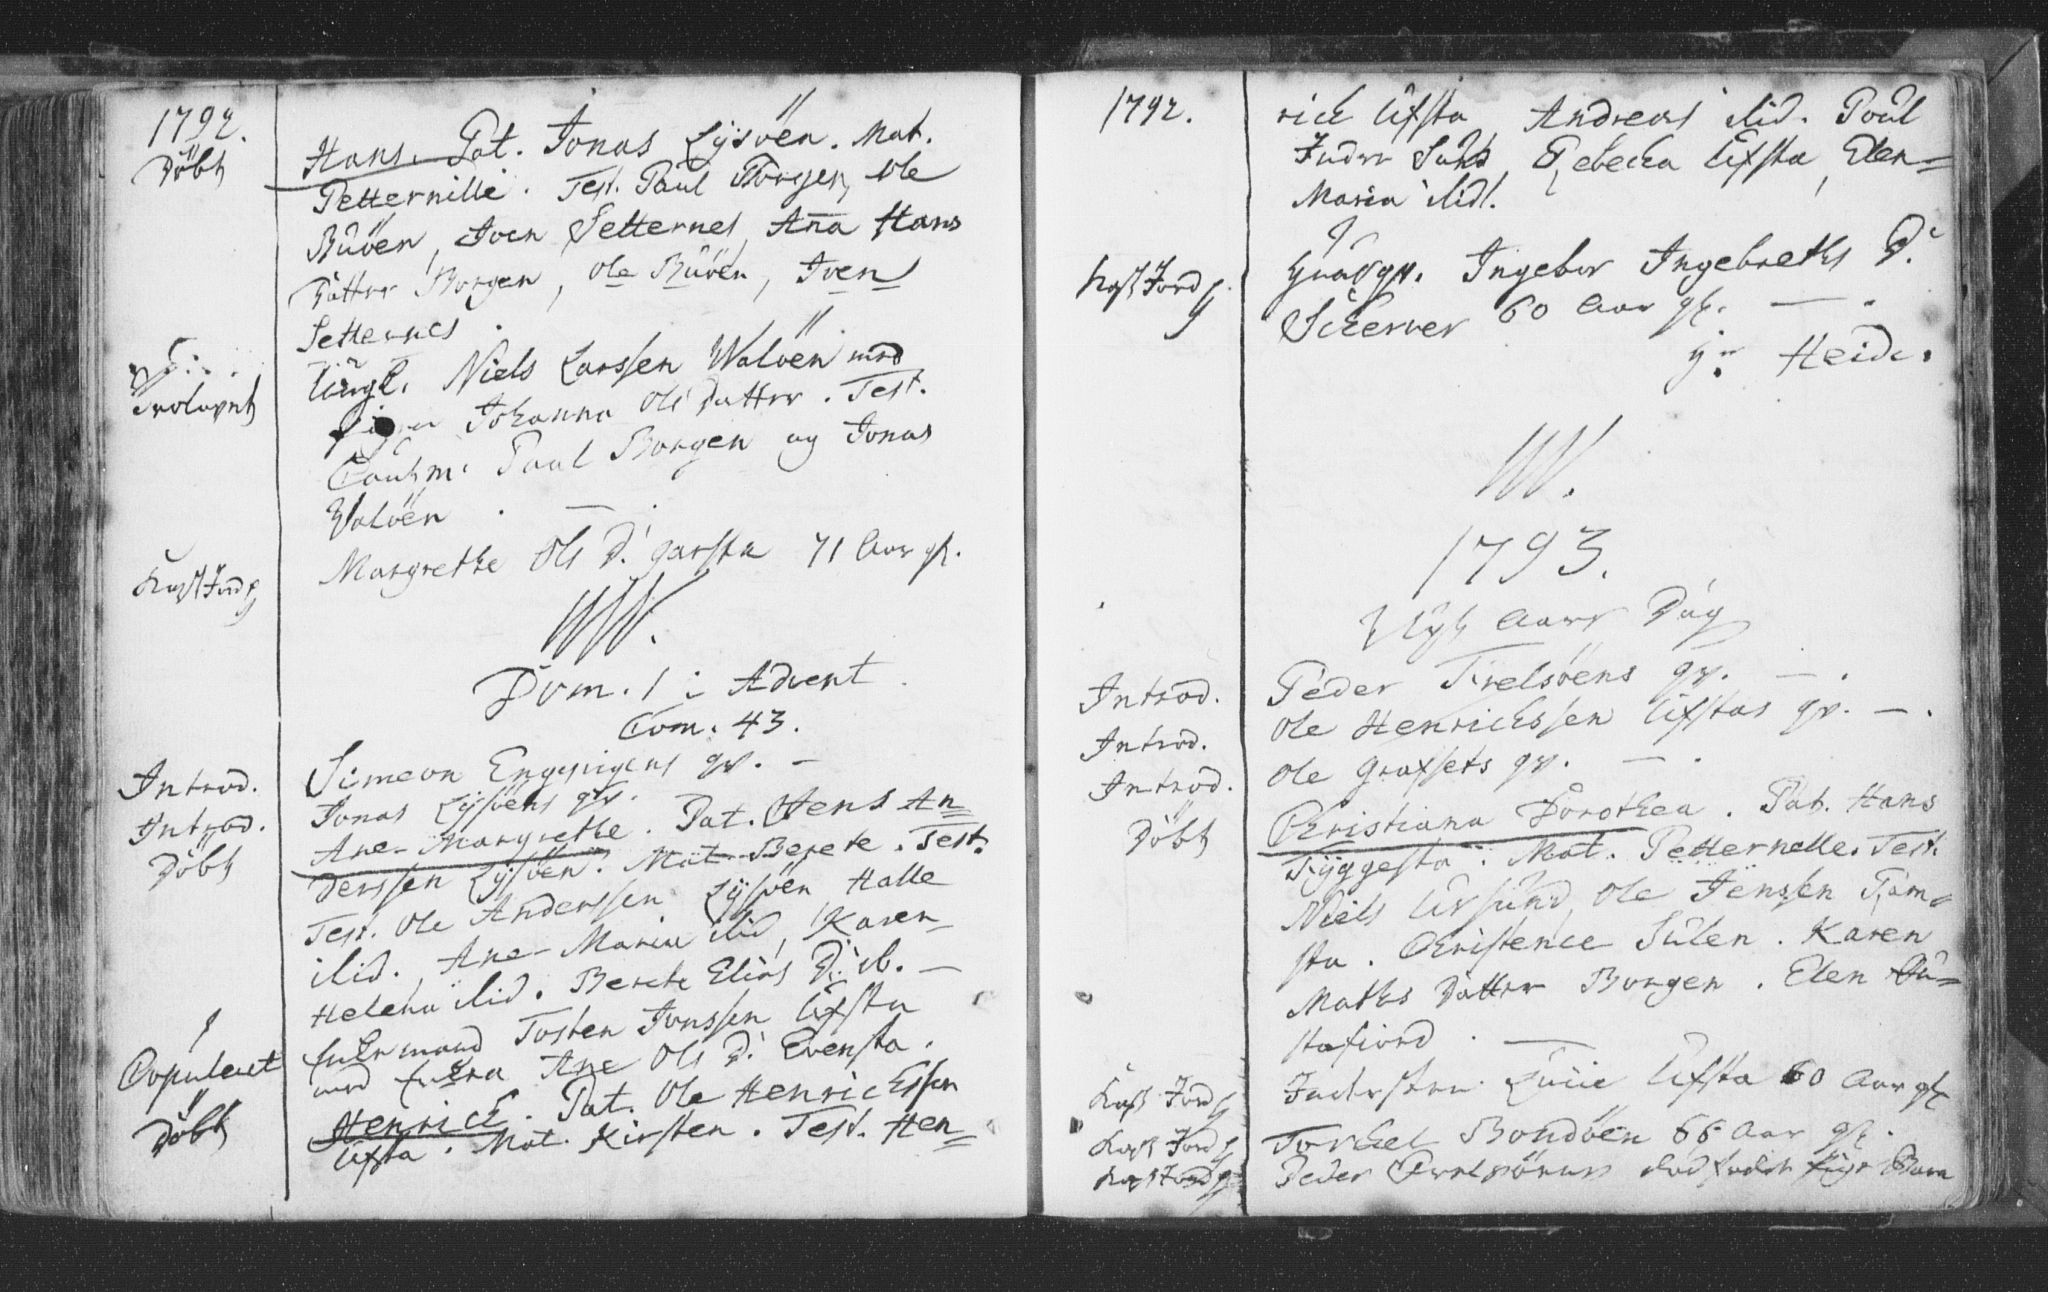 1792.
Döbt
Hans. Pat. Jonas Lÿsöen. Mat.
Petternille. Test. Paul Borgen, Ole
Büöen, Iven Setternes, Ana Hans
Datter Borgen, Ole Büöen, Iven
Setternes.
Trolovet
Ungk. Niels Larssen Waloen med
Pigen Johanna Ols Datter. Test.
Cautm: Paul Borgen og Jonas
Waloen. —
Kast Jord p
Margrethe Ols D. garsta 71 Aar gl.
Dom. 1 i Advent.
Com. 43.
Introd. Simeon Engesigens qv. —
Introd. Jonas Lÿsöens qv.
Döbt Ane-Margrethe. Pat. Jens An=
derssen Lÿsöen. Mat Berete. Test.
Test. Ole Anderssen Lÿsöen Halle
ibid. Ane-Maria ibid, Karen-
Helena ibid. Berete Elias D. ib. —
Copuleret
Enkemand Tosten Jonssen Ufsta
med Enken Ane Ols D. Evensta.
Döbt Henrick. Pat. Ole Henrichssen
Ufsta. Mat. Kirsten. Test. Hen=
1792.
rich Ufsta Andreas ibid. Poul
Inder Rebecka Ufsta, Elen=
Maria ibid.
Kast Jord p
Ingebor Ingebreths D.
Scherver 60 Aar gl. —.
Heide.
1793.
Nyt Aars Dag
Introd. Peder Trelsöens qv. —.
Introd. Ole Henrichssen Ufstas qv. —.
Introd. Ole Grafsets qv. —.
Döbt Christiana Dorothea. Pat. Hans
Tÿggesta. Mat. Petternelle. Test.
Niels Ursund, Ole Jenssen Tom=
sta. Christence Sulen. Karen
Maths Datter Borgen. Elen Su=
stafiord. —
Kast Jord p Indersten Lucie Ufsta 60 Aar gl
Kast Jord p Torkel Bondöen 66 Aar gl.
Kast Jord p Peder Trelsöens dødfødt Pige Barn